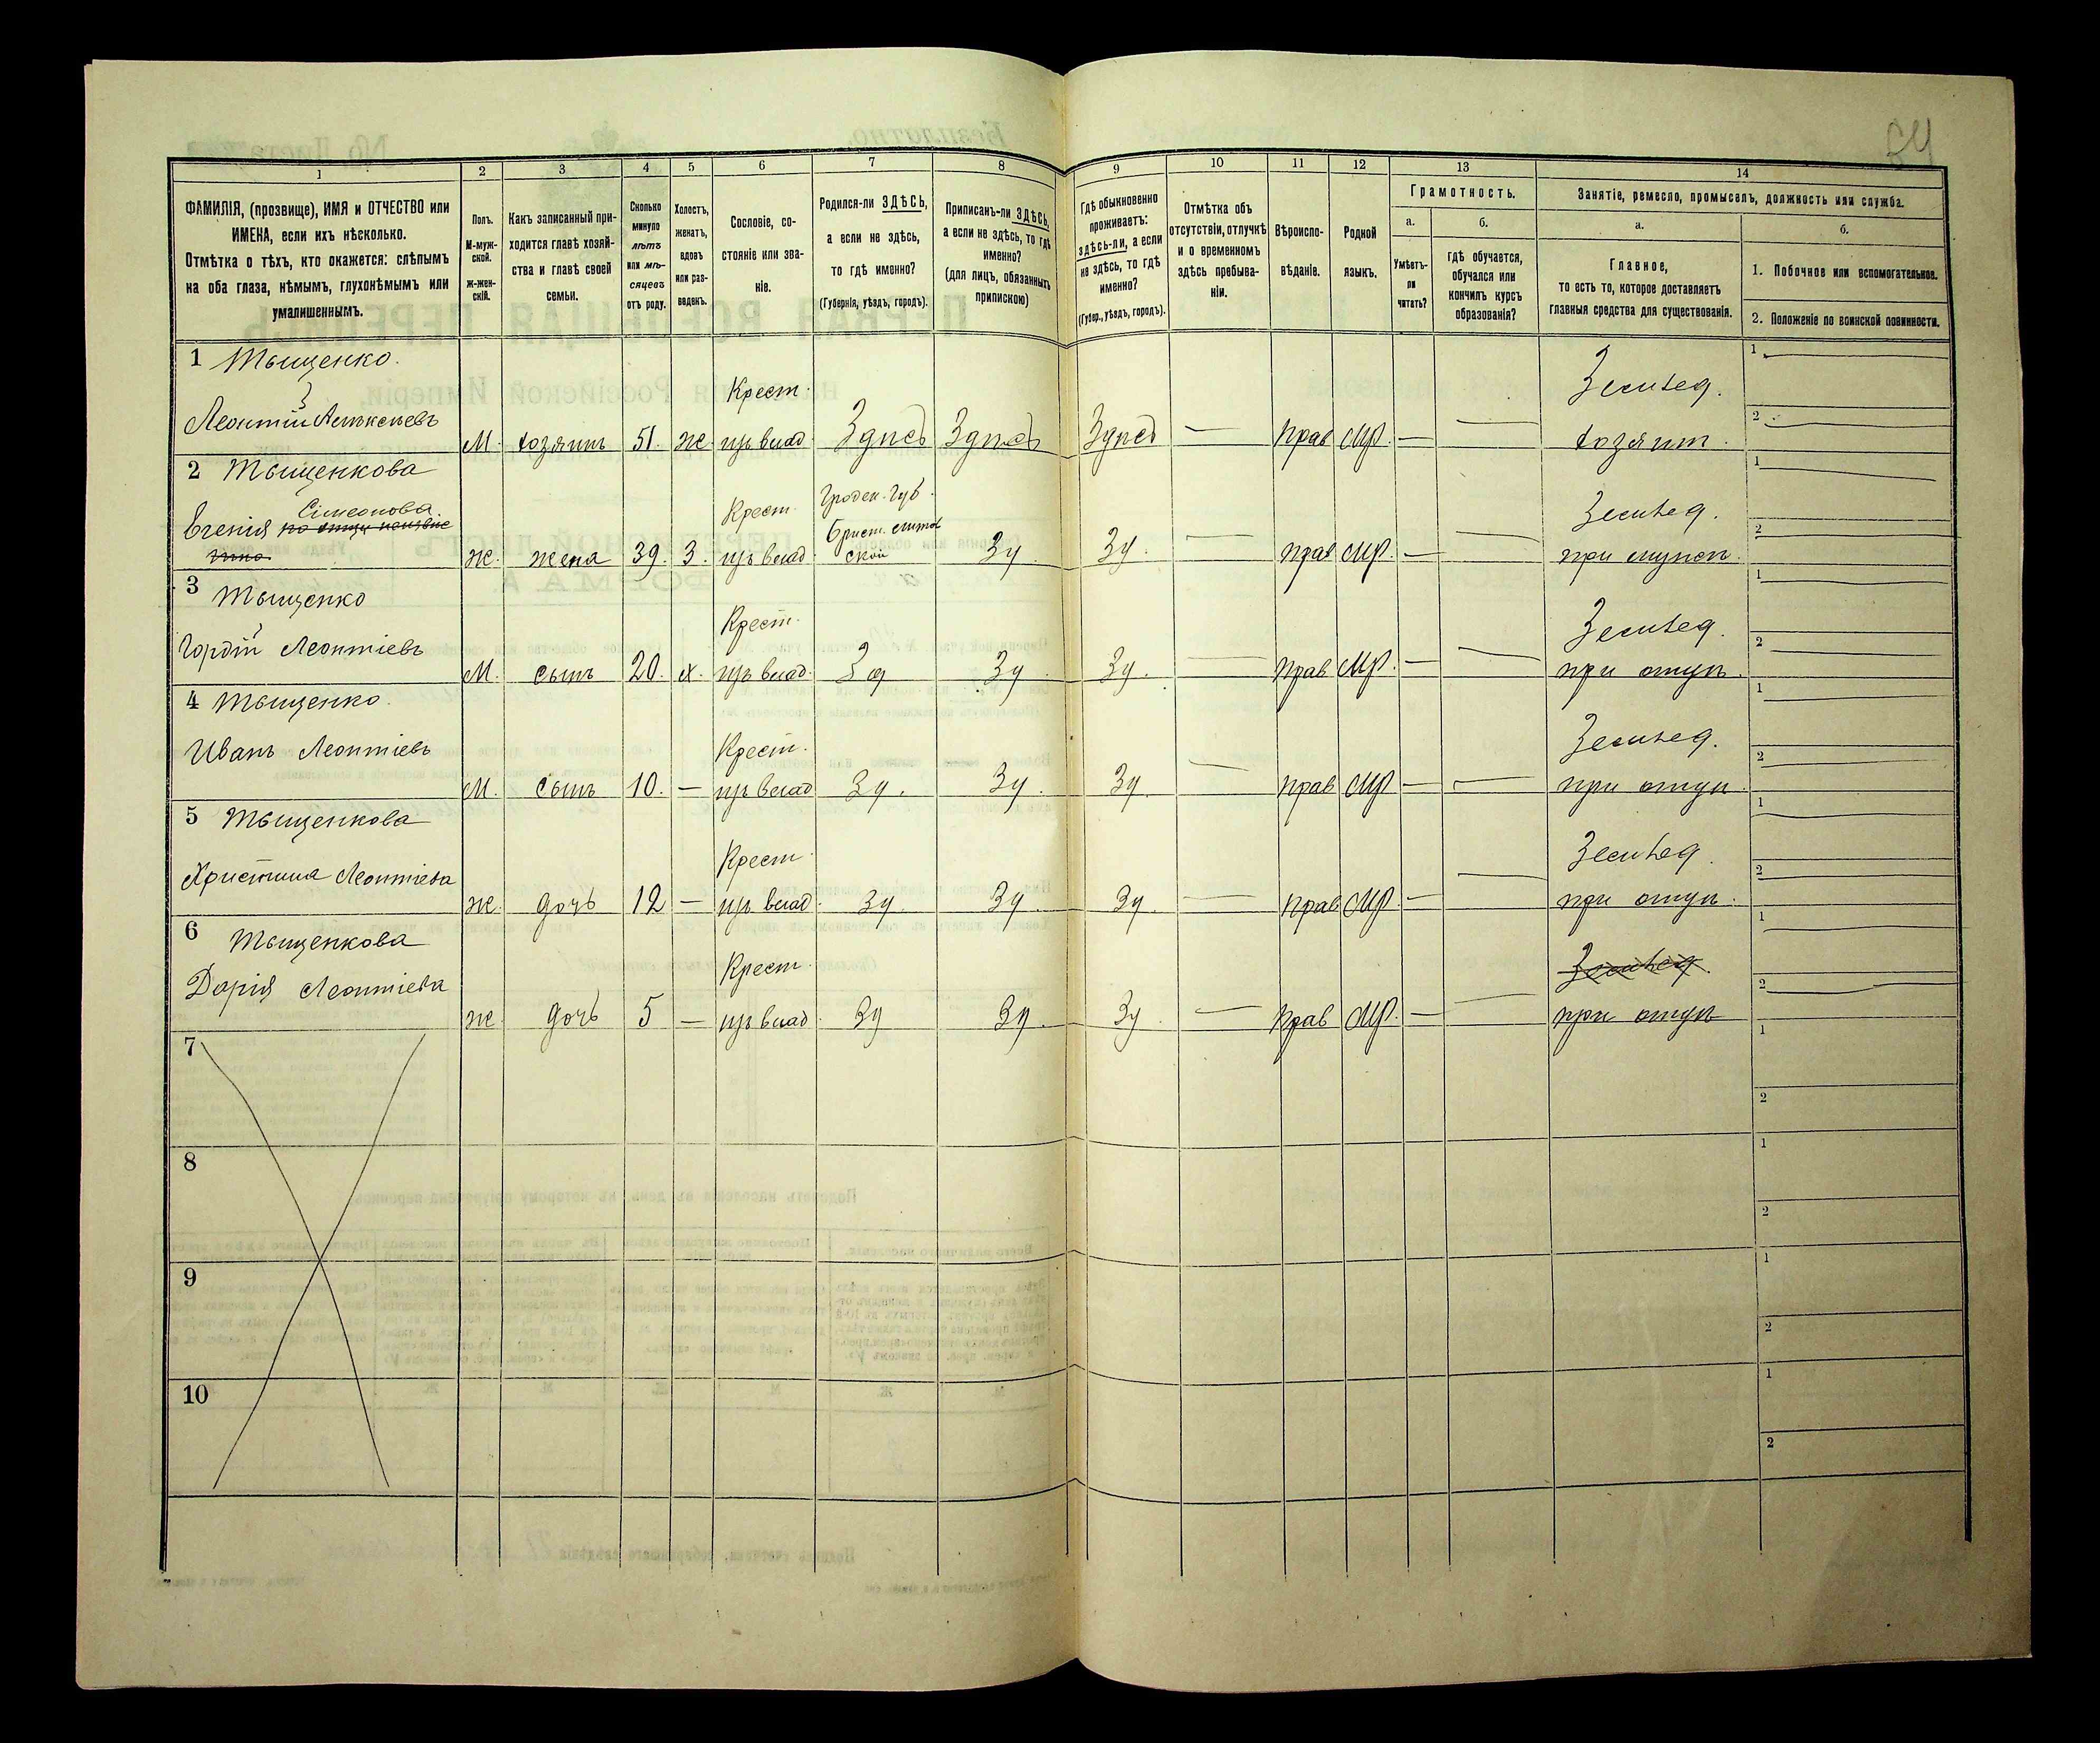 54
1 2 3 4 5 6 7 8 9 10 11 12 13 14
ФАМИЛІЯ, (прозвище), ИМЯ и ОТЧЕСТВО или
ИМЕНА, если ихъ нѣсколько.
Отмѣтка о тѣхъ, кто окажется: слѣпымъ
на оба глаза, нѣмымъ, глухонѣмымъ или
умалишеннымъ.
Полъ.
М-муж-
ской.
Ж-жен-
скій.
Какъ записанный при-
ходится главѣ хозяй-
ства и главѣ своей
семьи.
Сколько
минуло
лѣтъ
или мѣ-
сяцевъ
отъ роду.
Холостъ,
женатъ,
вдовъ
или раз-
веденъ.
Сословіе, со-
стояніе или зва-
ніе.
Родился-ли ЗДѢСЬ,
а если не здѣсь,
то гдѣ именно?
(Губернія, уѣздъ, городъ).
Приписанъ-ли ЗДѢСЬ,
а если не здѣсь, то гдѣ
именно?
(для лицъ, обязанныхъ
припискою)
Гдѣ обыкновенно
проживаетъ:
здѣсь-ли, а если
не здѣсь, то гдѣ
именно?
(Губер., уѣздъ, городъ).
Отмѣтка объ
отсутствіи, отлучкѣ
и о временномъ
здѣсь пребыва-
ніи.
Вѣроиспо-
вѣданіе.
Родной
языкъ.
Грамотность.
а.
Умѣетъ-
ли
читать?
б.
гдѣ обучается,
обучался или
кончилъ курсъ
образованія?
Занятіе, ремесло, промыселъ, должность или служба.
а.
Главное,
то есть то, которое доставляетъ
главныя средства для существованія.
б.
1. Побочное или вспомогательное.
2. Положеніе по воинской повинности.
1 Тыщенко
Крест.
Земled.
1
Леонтій Алексѣевъ М. хозяинъ 51. ж. изъ влад. Здѣсь Здѣсь Здѣсь — прав мр. — — хозяин. 2
2 Тыщенкова
Крест. Гроден. губ.
Землед. 1
Сімеонова.
Евгенія Брест. литов
ской
ж. жена 39. З. изъ влад. Зд. Зд. прав мр. — — при мужѣ. 2
3 Тыщенко
Крест.
Землед. 1
Гордій Леонтіевъ М. сынъ 20. х. изъ влад. Зд Зд Зд. — прав мр. — — при отцѣ. 2
4 Тыщенко
Крест.
Землед. 1
Иванъ Леонтіевъ М. сынъ 10. — изъ влад Зд. Зд. Зд. — прав мр — — при отцѣ. 2
5 Тыщенкова
Крест.
Землед. 1
Христина Леонтіева ж. дочь 12 — изъ влад. Зд. Зд. Зд. — прав мр. — — при отцѣ. 2
6 Тыщенкова
Крест.
Землед. 1
Дарія Леонтіева ж. дочь 5 — изъ влад. Зд Зд. Зд. — прав мр. — — при отцѣ 2
7 1
2
8 1
2
9 1
2
10 1
2